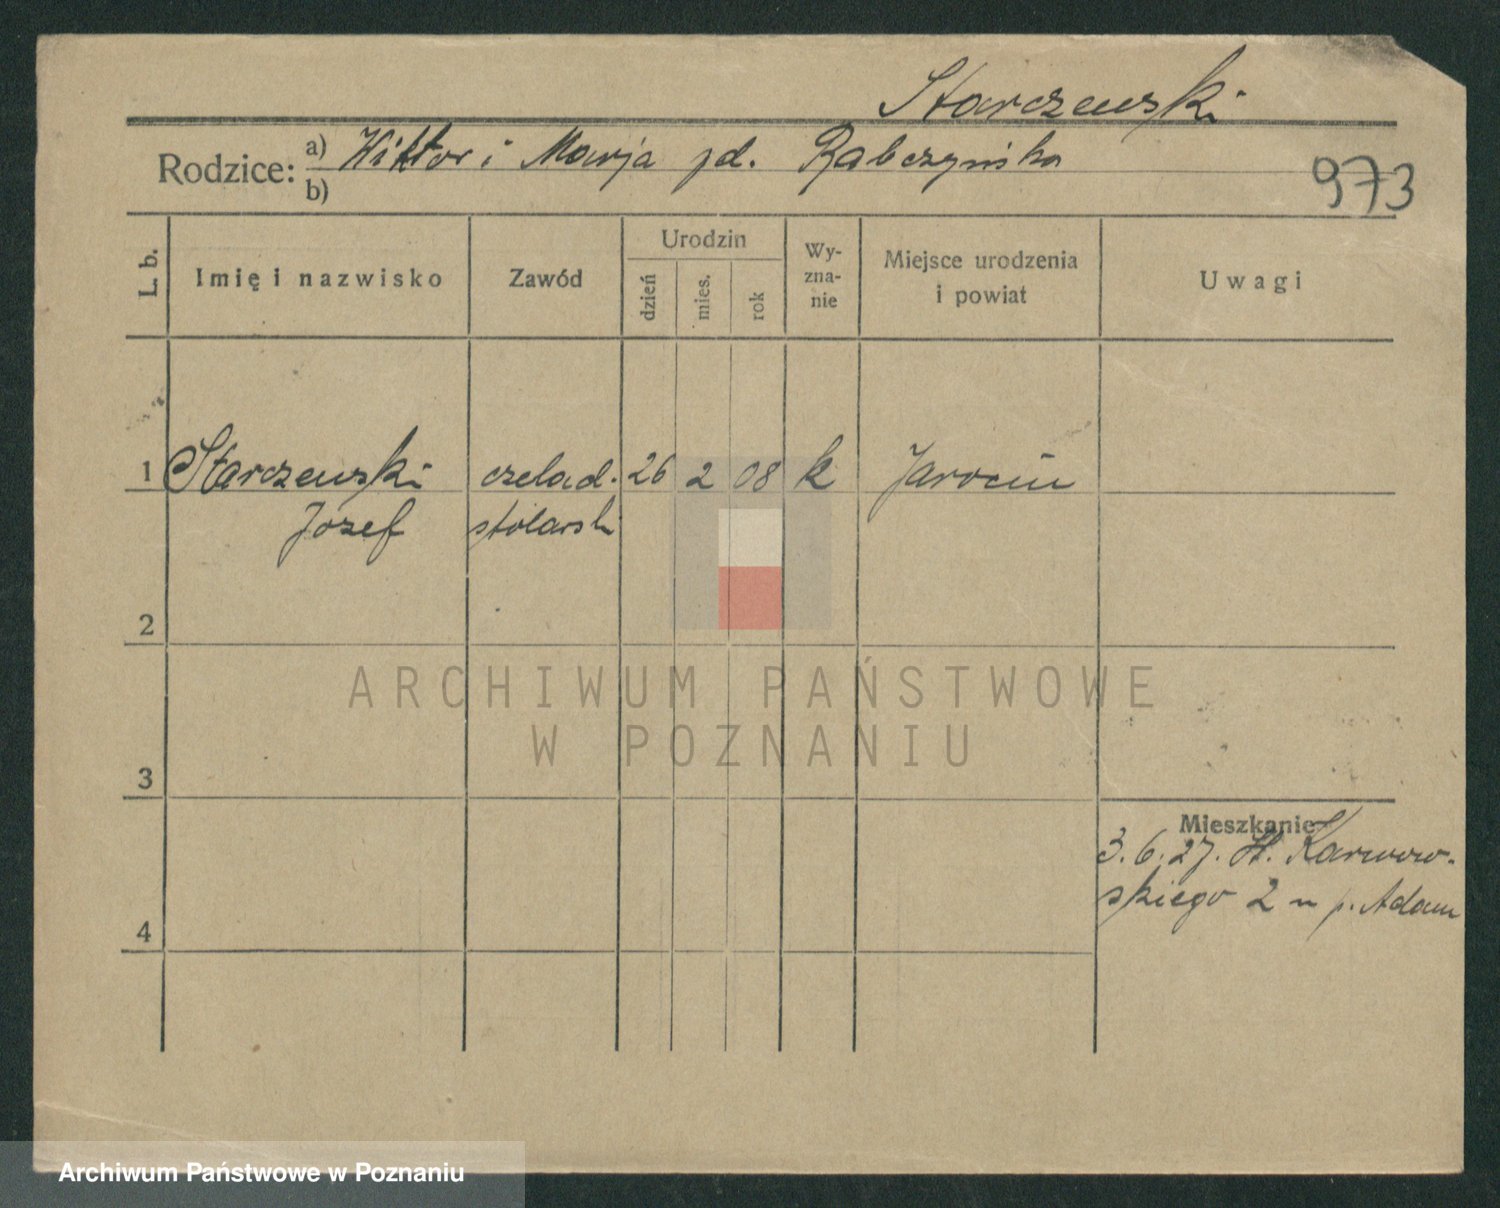 Starczewski
Rodzice: a) Wiktor i Marja zd. Rabczyńska
b)
973
L. b.
Imię i nazwisko
Zawód
Urodzin
dzień
mies.
rok
Wy-
zna-
nie
Miejsce urodzenia
i powiat
Uwagi
1 Starczewski czelad. 26 2 08 k Jarocin
Józef stolarski
2
3
4
Mieszkanie
3.6.27. St. Karwow-
skiego 2 u p. Adam
ARCHIWUM PAŃSTWOWE
W POZNANIU
Archiwum Państwowe w Poznaniu